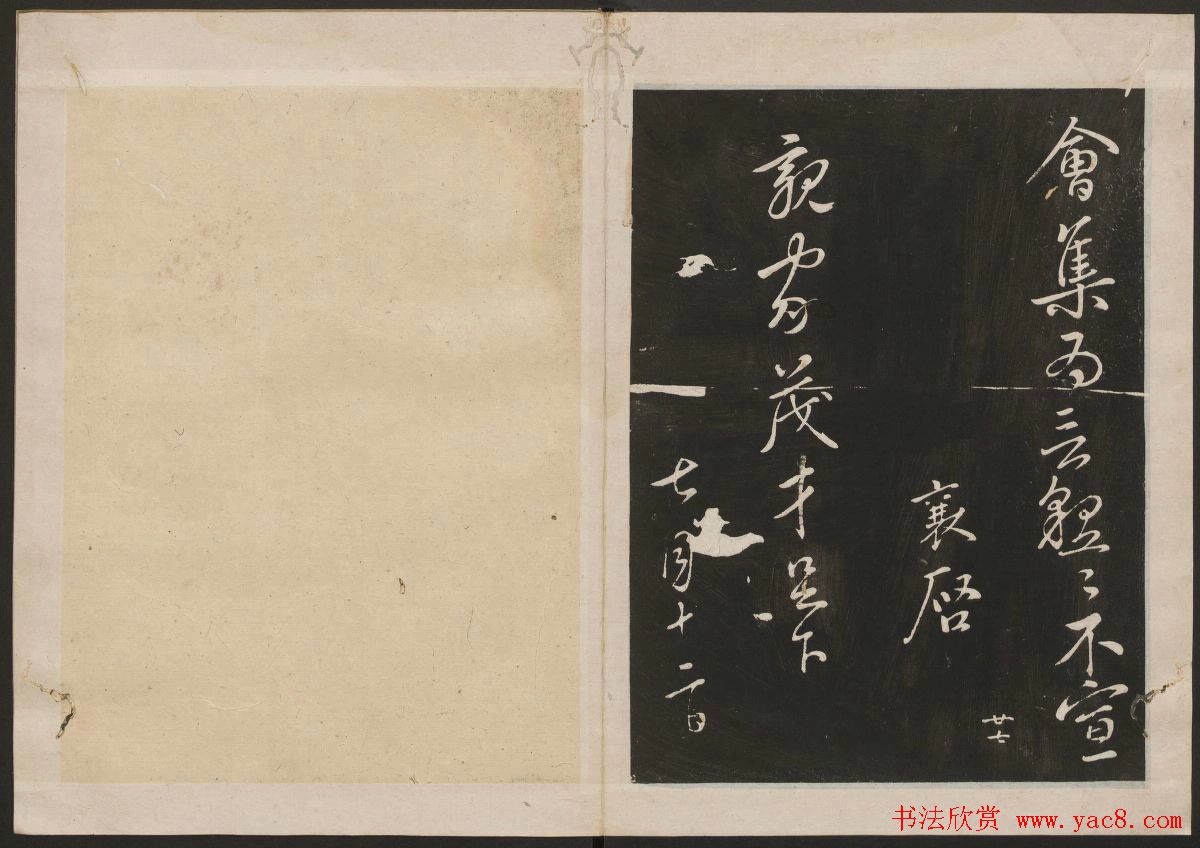 會集为言懇〻不宣
襄啓
廿七
親家茂才足下
七月十二日
书法欣赏 www.yac8.com